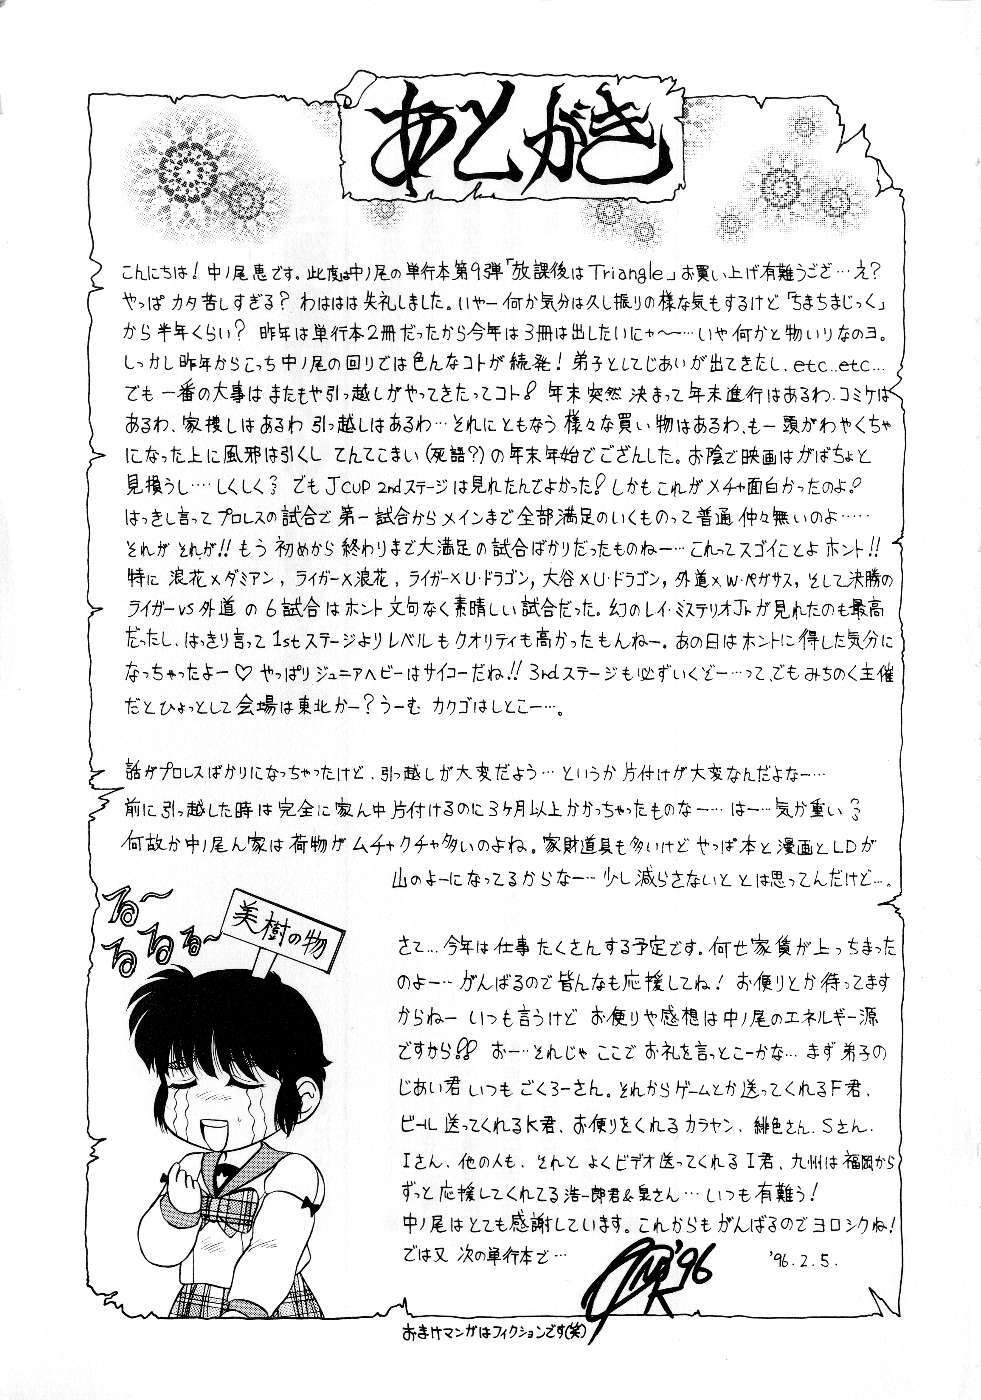 あとがき
こんにちは!中ノ尾恵です。此度は中ノ尾の単行本第9弾「放課後はTriangle」お買い上げ有難うござ…え?
やっぱ カタ苦しすぎる? わははは失礼しました。いやー何か気分は久し振りの様な気もするけど「ちまちまじっく」
から半年くらい? 昨年は単行本2冊だったから今年は3冊は出したいにゃ〜〜…いや何かと物いりなのヨ。
しっかし昨年からこっち中ノ尾の回りでは色んなコトが続発! 弟子としてじあいが出てきたし、etc…etc…
でも一番の大事はまたもや引っ越しがやってきたってコト!! 年末突然決まって年末進行はあるわ、コミケは
あるわ、家捜しはあるわ引っ越しはあるわ…それにともなう様々な買い物はあるわ、も一頭がわやくちゃ
になった上に風邪は引くし てんてこまい(死語?)の年末年始でござんした。お陰で映画はがばちょと
見損うし……しくしく でもJ CUP 2ndステージは見れたんでよかった!しかもこれがメチャ面白かったのよ!
はっきし言ってプロレスの試合で第一試合からメインまで全部満足のいくものって普通仲々無いのよ……
それが それが!! もう初めから終わりまで大満足の試合ばかりだったものねー…これってスゴイことよホント!!
特に 浪花×ダミアン, ライガー×浪花, ライガー×U・ドラゴン, 大谷×U・ドラゴン, 外道×W・ペガサス, そして決勝の
ライガーvs外道 の6試合はホント文句なく素晴しい試合だった。幻のレイ・ミステリオJrが見れたのも最高
だったし、はっきり言って1stステージよりレベルもクオリティも高かったもんねー。あの日はホントに得した気分に
なっちゃったよー♡ やっぱりジュニアヘビーはサイコーだね!! 3rdステージも必ずいくぞー…って、でもみちのく主催
だとひょっとして会場は東北かー?うーむ カクゴはしとこー…。
話がプロレスばかりになっちゃったけど、引っ越しが大変だよう…というか片付けが大変なんだよなー…
前に引っ越した時は完全に家ん中片付けるのに3ヶ月以上かかっちゃったものなー…はー…気が重い
何故か中ノ尾ん家は荷物がムチャクチャ多いのよね。家財道具も多いけど やっぱ本と漫画とLDが
山のよーになってるからなー…少し減らさないと とは思ってんだけど…。
さて…今年は仕事たくさんする予定です。何せ家賃が上っちまった
のよー…がんばるので皆んなも応援してね! お便りとか待ってます
からねー いつも言うけど お便りや感想は中ノ尾のエネルギー源
ですから!! おー…それじゃ ここで お礼を言っとこーかな…まず弟子の
じあい君 いつも ごくろーさん。それからゲームとか送ってくれるF君、
ビール送ってくれるK君、お便りをくれるカラヤン、緋色さん、Sさん、
Iさん、他の人も、それと よくビデオ送ってくれるI君、九州は福岡から
ずっと応援してくれてる浩一郎君&泉さん…いつも有難う!
中ノ尾はとても感謝しています。これからもがんばるのでヨロシクね!
では又 次の単行本で…
'96
'96.2.5.
る〜
るるる〜
美樹の物
おまけマンガはフィクションです(笑)